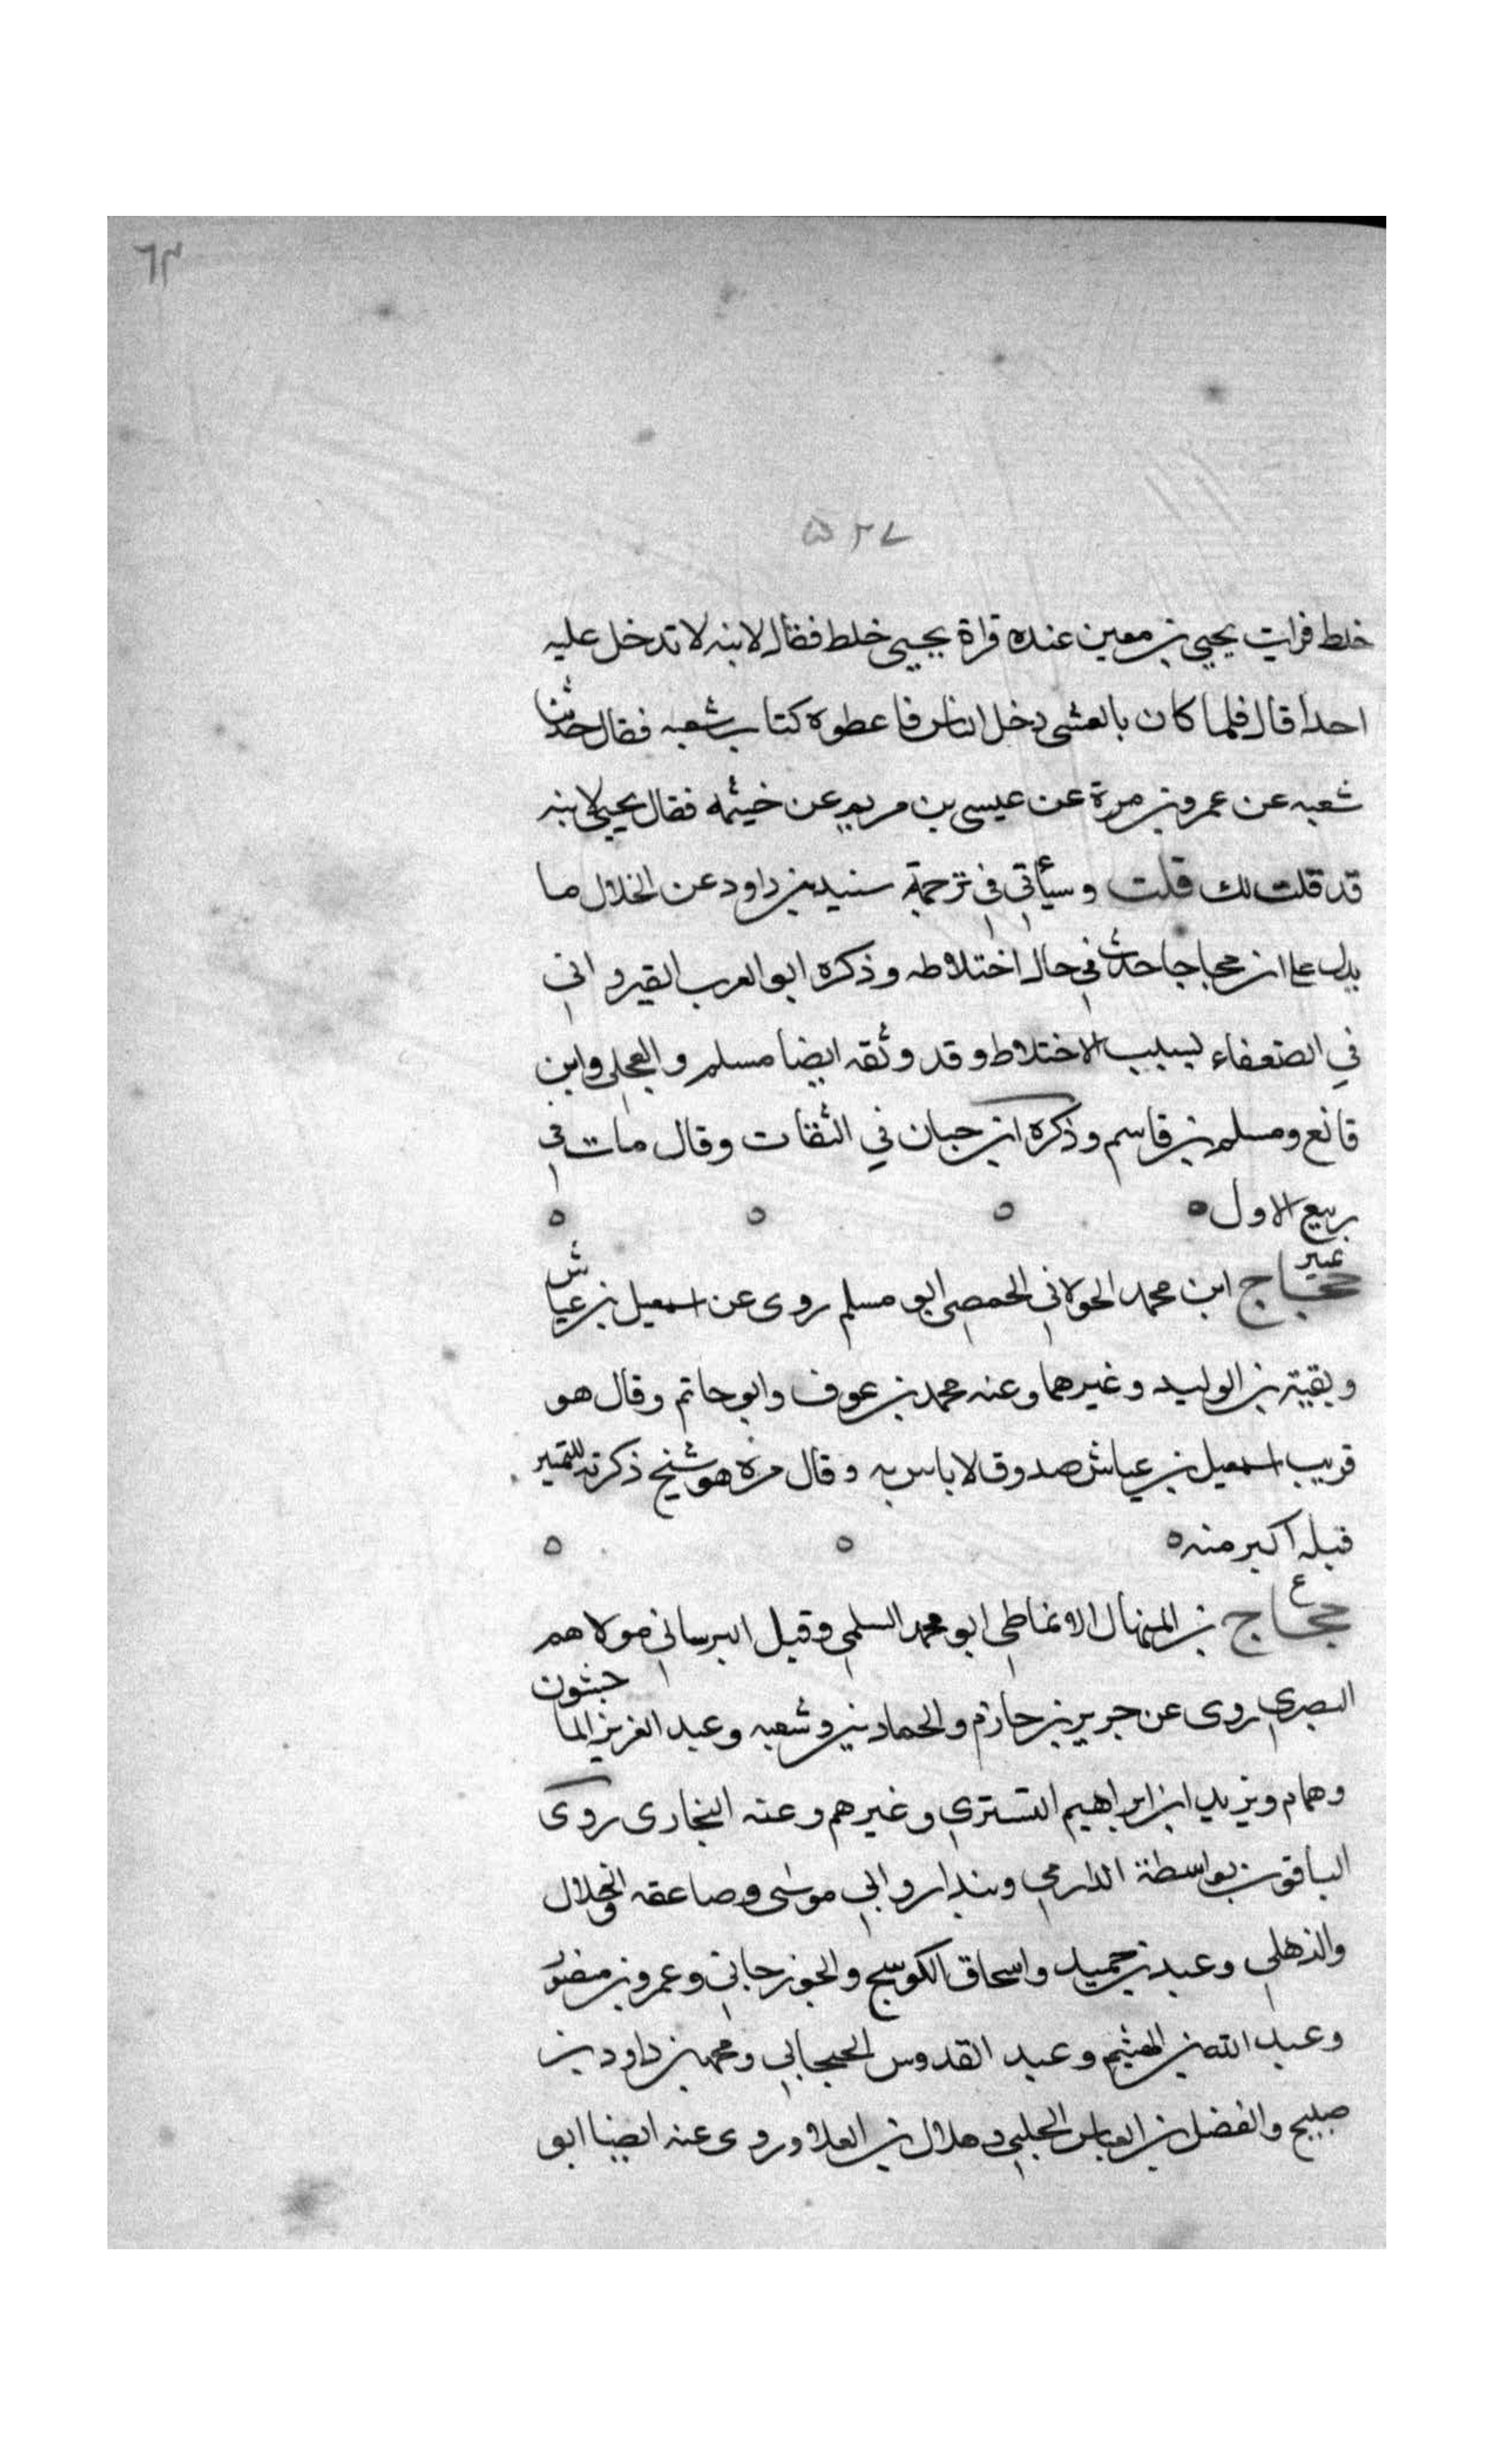 ٦٣
٥٢٧
خلط فرايت يحيى بن معين عنده قراة يحيى خلط فقال لابنه لا تدخل عليه
احدا قال فلما كان بالعشى دخل الناس فاعطوه كتاب شعبه فقال حدثنا
شعبه عن عمرو بن مرة عن عيسى بن مريم عن خيثمه فقال يحيى لابنه
قد قلت لك قلت وسيأتي في ترجمة سنيد بن داود عن الخلال ما
يدل على ان حجاجا حدث في حال اختلاطه وذكره ابو العرب القيرواني
في الضعفاء لسبب الاختلاط وقد وثقه ايضا مسلم والعجلي وابن
قانع ومسلم بن قاسم وذكره ابن حبان في الثقات وقال مات في
ربيع الاول ٥ ٥ ٥ ٥
تمييز
حجاج ابن محمد الخولاني الحمصي ابو مسلم روى عن اسمعيل بن عياش
وبقية بن الوليد وغيرهما وعنه محمد بن عوف وابو حاتم وقال هو
قريب اسمعيل بن عياش صدوق لا باس به وقال مرة هو شيخ ذكرته للتمييز
قبله اكبر منه ٥ ٥ ٥
ع
حجاج بن المنهال الانماطي ابو محمد السلمي وقيل البرساني مولاهم
البصري روى عن جرير بن حازم والحمادين وشعبه وعبد العزيز الماجشون
وهمام ويزيد ابن ابراهيم التستري وغيرهم وعنه البخارى روى
الباقون بواسطة الدارمي وبندار وابي موسى وصاعقه والخلال
والذهلي وعبد بن حميد واسحاق الكوسج والجوزجاني وعمرو بن منصور
وعبد الله بن الهيثم وعبد القدوس الحبحابي ومحمد بن داود بن
صبيح والفضل بن العباس الحلبي وهلال بن العلا وروى عنه ايضا ابو